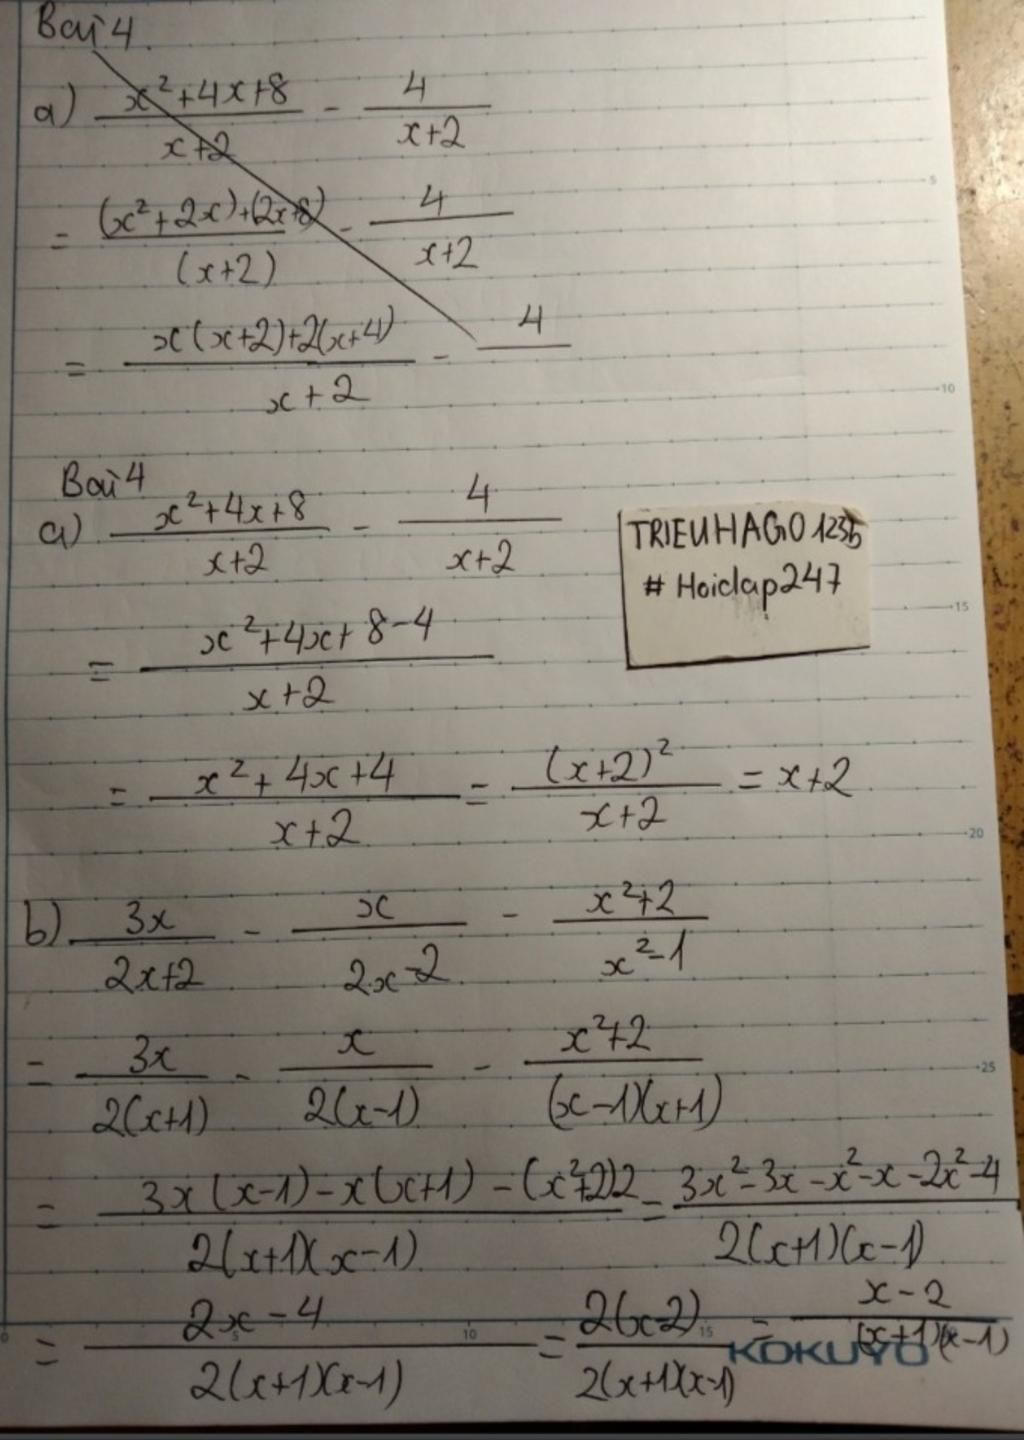 Bài 4.
a) (x²+4x+8)/(x+2) - 4/(x+2)
= ((x²+2x)+(2x+8))/(x+2) - 4/(x+2)
= (x(x+2)+2(x+4))/(x+2) - 4/
Bài 4
a) (x²+4x+8)/(x+2) - 4/(x+2)
TRIEUHAGO1235
# Hoidap247
= (x²+4x+8-4)/(x+2)
= (x²+4x+4)/(x+2) = (x+2)²/(x+2) = x+2
b) 3x/(2x+2) - x/(2x-2) - (x²+2)/(x²-1)
= 3x/(2(x+1)) - x/(2(x-1)) - (x²+2)/((x-1)(x+1))
= (3x(x-1)-x(x+1)-(x²+2)2)/(2(x+1)(x-1)) = (3x²-3x-x²-x-2x²-4)/(2(x+1)(x-1))
= (2x-4)/(2(x+1)(x-1)) = 2(x-2)/(2(x+1)(x-1)) = (x-2)/((x+1)(x-1))
KOKUYO
5
10
15
20
25
0
5
10
15